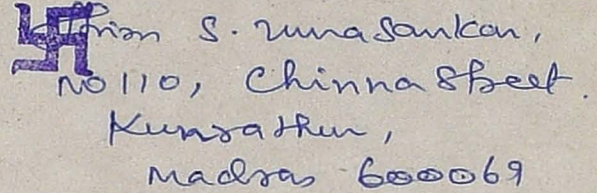 S. Umasankar,
NO 110, Chinna Street.
Kunrathur,
Madras 600069